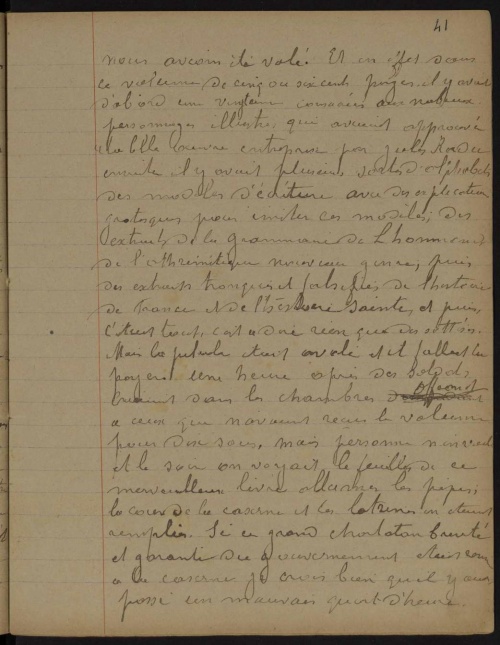 41
nous avions été volé. Et en effet dans
ce volume de cinq ou six cents pages il y avait
d'abord une vingtaine consacrées aux nobeux
personnages illustres qui avaient approuvé
la belle œuvre entreprise par Jules Rod
ensuite il y avait plusieurs sortes d'alphabets
des modeles d'écriture avec des explication
grotesques pour imiter ces modeles; des
extraits de la grammaire de Lhommond
de l'arthremetique nouveau genre, puis
des extraits tronqués et falsifiés de l'histoire
de France et de l'histoire Sainte, et puis,
c'était tout, c'est a dire rien que des sottises.
Mais la pilule etait avalé et il fallait la
payer. Une heure après des soldats
criaient dans les chambres offrant
a ceux qui n'avaient reçu le volume
pour dix sous, mais personne n'en voul
et le soir on voyait les feuilles de ce
merveilleux livre allumer les pipes;
la cour de la caserne et les latrines en etaient
remplis. Si ce grand charlatan breveté
et garanti du gouvernement etait venu
a la caserne je crois bien qu'il y aur
passé un mauvais quart d'heure.